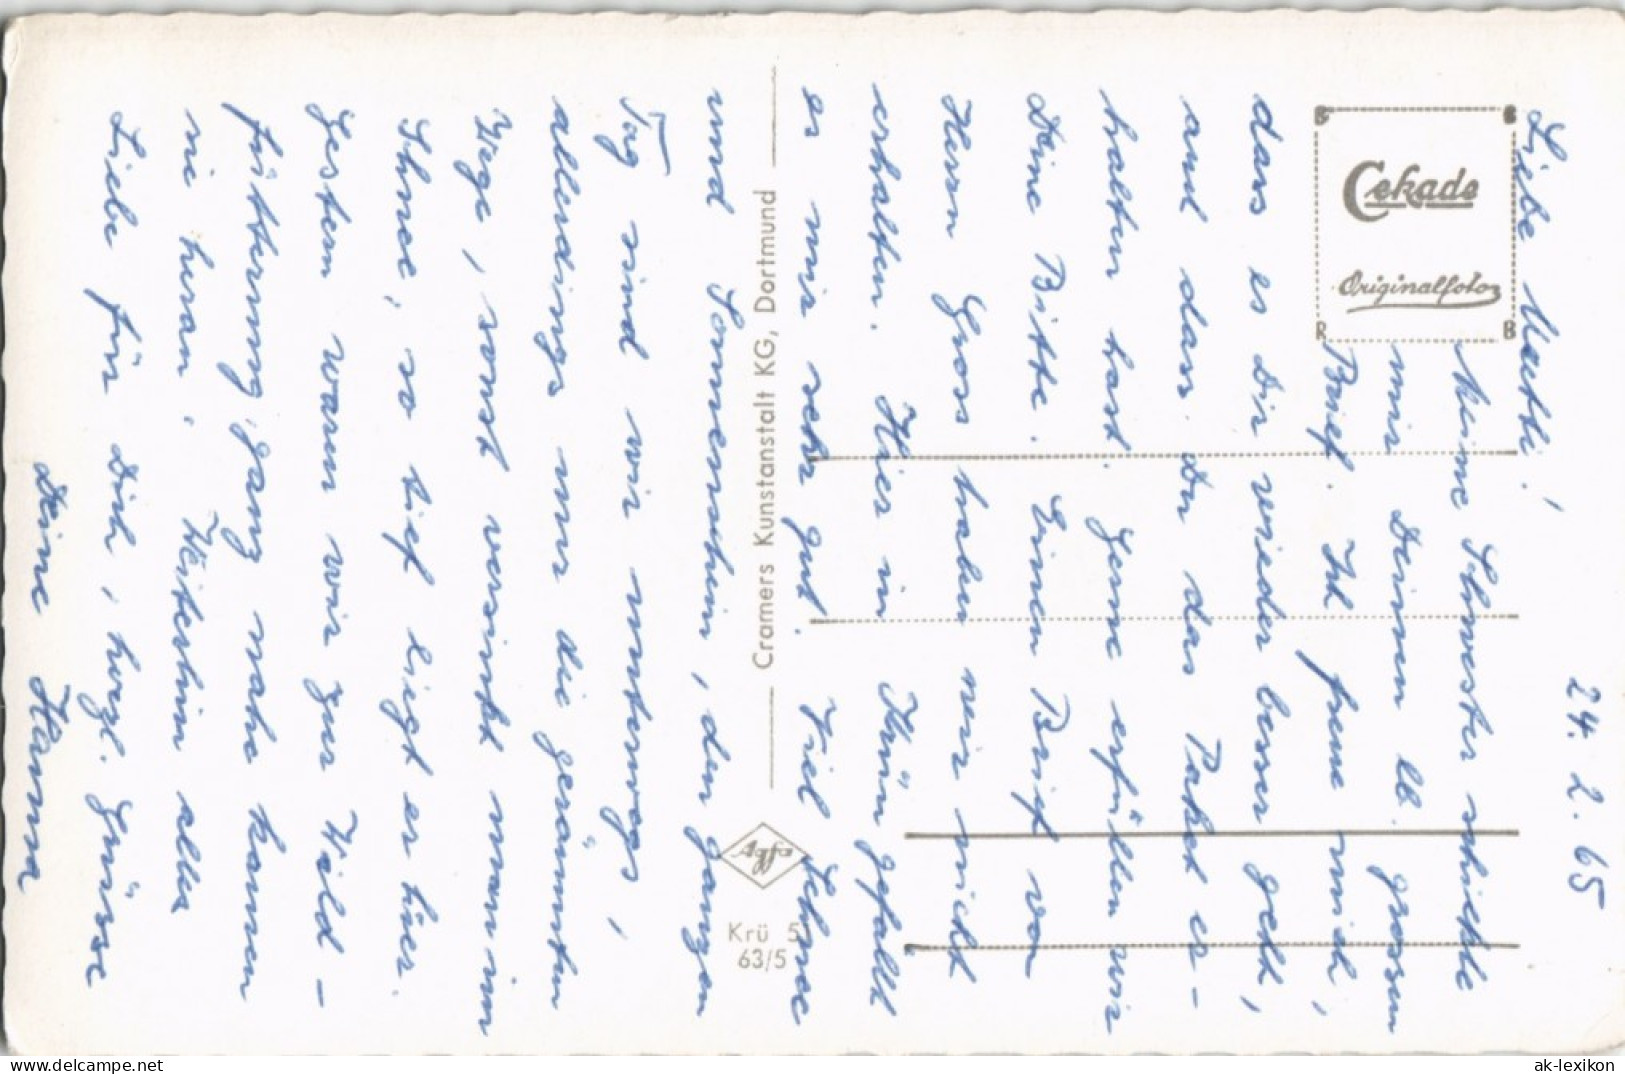 24. 2. 65
Liebe Mutti!
Meine Schwester schickte
mir Deinen lb. grossen
Brief. Ich freue mich,
dass es Dir wieder besser geht,
und dass Du das Paket er-
halten hast. Gerne erfüllen wir
Deine Bitte. Einen Brief von
Herrn Gross haben wir nicht
erhalten. Hier in Krün gefällt
es mir sehr gut. Viel Schnee
und Sonnenschein, den ganzen
Tag sind wir unterwegs,
allerdings nur die geräumten
Wege, sonst versinkt man im
Schnee, so tief liegt er hier.
Gestern waren wir zur Wild-
fütterung, ganz nahe kamen
sie heran. Weiterhin alles
Liebe für Dich, herzl. Grüsse
Deine Hanna
Cekade
Originalfoto
B
R
B
Cramers Kunstanstalt KG, Dortmund
Agfa
Krü 5
63/5
https://www.delcampe.net
ak-lexikon